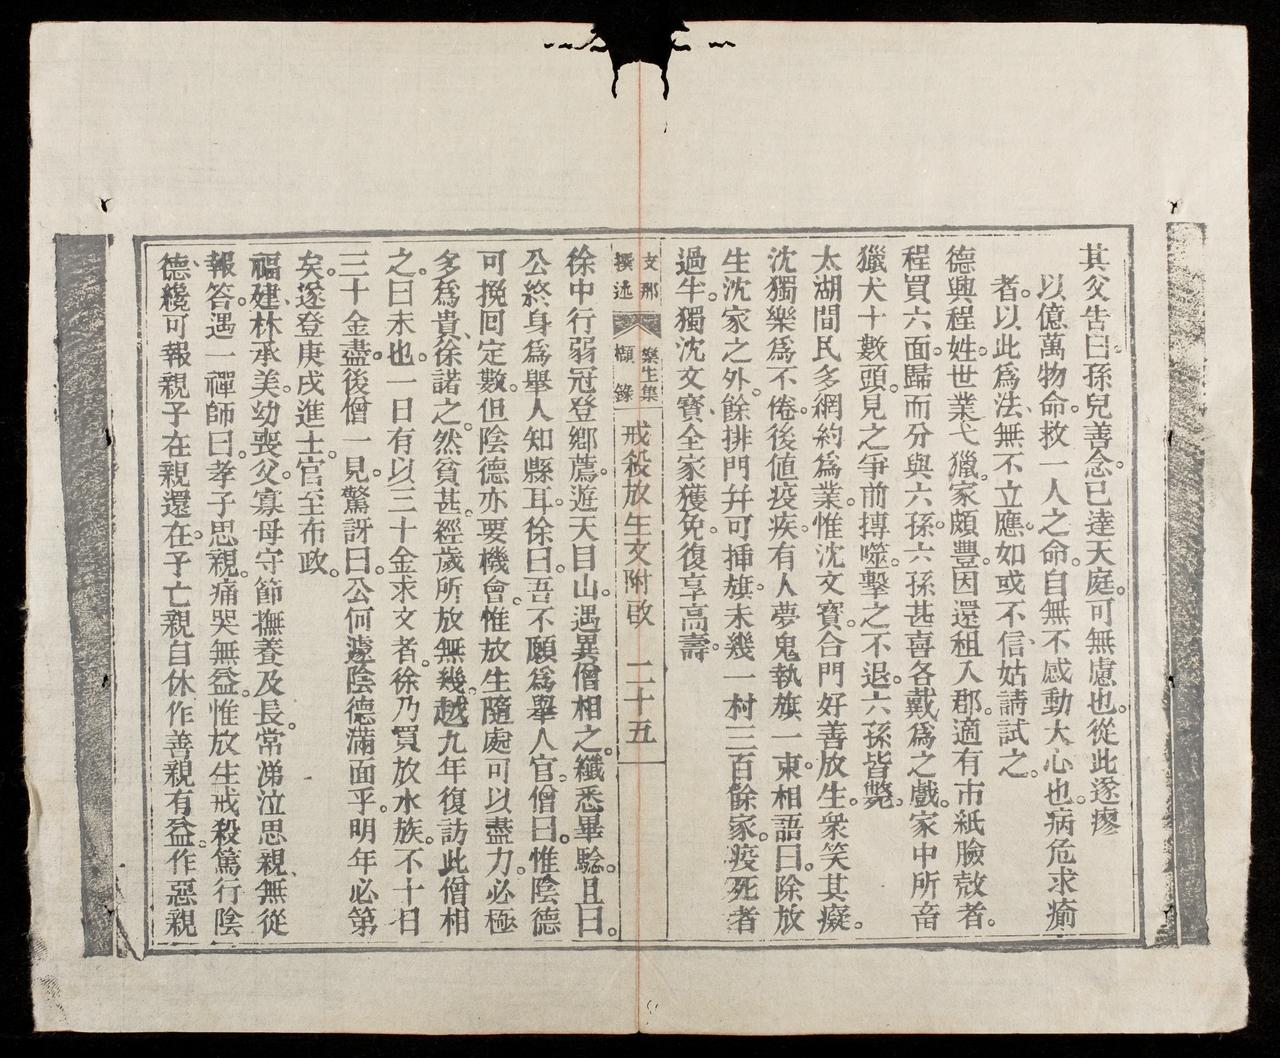 其父告曰孫兒善念已達天庭。可無慮也。從此遂瘳
以億萬物命。救一人之命。自無不感動大心也。病危求瘉
者。以此爲法、無不立應。如或不信、姑請試之。
德興程姓。世業弋獵。家頗豐。因還租入郡。適有市紙臉殼者。
程買六面。歸而分與六孫。六孫甚喜各戴爲之戲。家中所畜
獵犬十數頭。見之爭前搏噬。擊之不退。六孫皆斃。
太湖間民多網約爲業。惟沈文寶。合門好善放生。衆笑其癡。
沈獨樂爲不倦。後値疫疾。有人夢鬼執旗一束。相語曰。除放
生沈家之外。餘排門幷可揷旗。未幾一村三百餘家。疫死者
過半。獨沈文寶、全家獲免。復享高壽。
支那撰述
樂生集 㯋錄
戒殺放生文附啟 二十五
徐中行弱冠登鄉薦。遊天目山。遇異僧相之。纖悉畢驗。且曰。
公終身爲舉人知縣耳。徐曰。吾不願爲舉人官。僧曰。惟陰德
可挽回定數。但陰德亦要機會。惟放生隨處可以盡力。必極
多爲貴、徐諾之。然貧甚。經歲所放無幾。越九年復訪此僧相
之。曰未也。一日有以三十金求文者。徐乃買放水族。不十日
三十金盡。後僧一見驚訝曰。公何遽陰德滿面乎。明年必第
矣。遂登庚戌進士。官至布政。
福建林承美。幼喪父。寡母守節撫養及長。常涕泣思親、無從
報答。遇一禪師曰。孝子思親。痛哭無益。惟放生戒殺篤行陰
德、纔可報親。子在親還在。子亡親自休作善親有益。作惡親